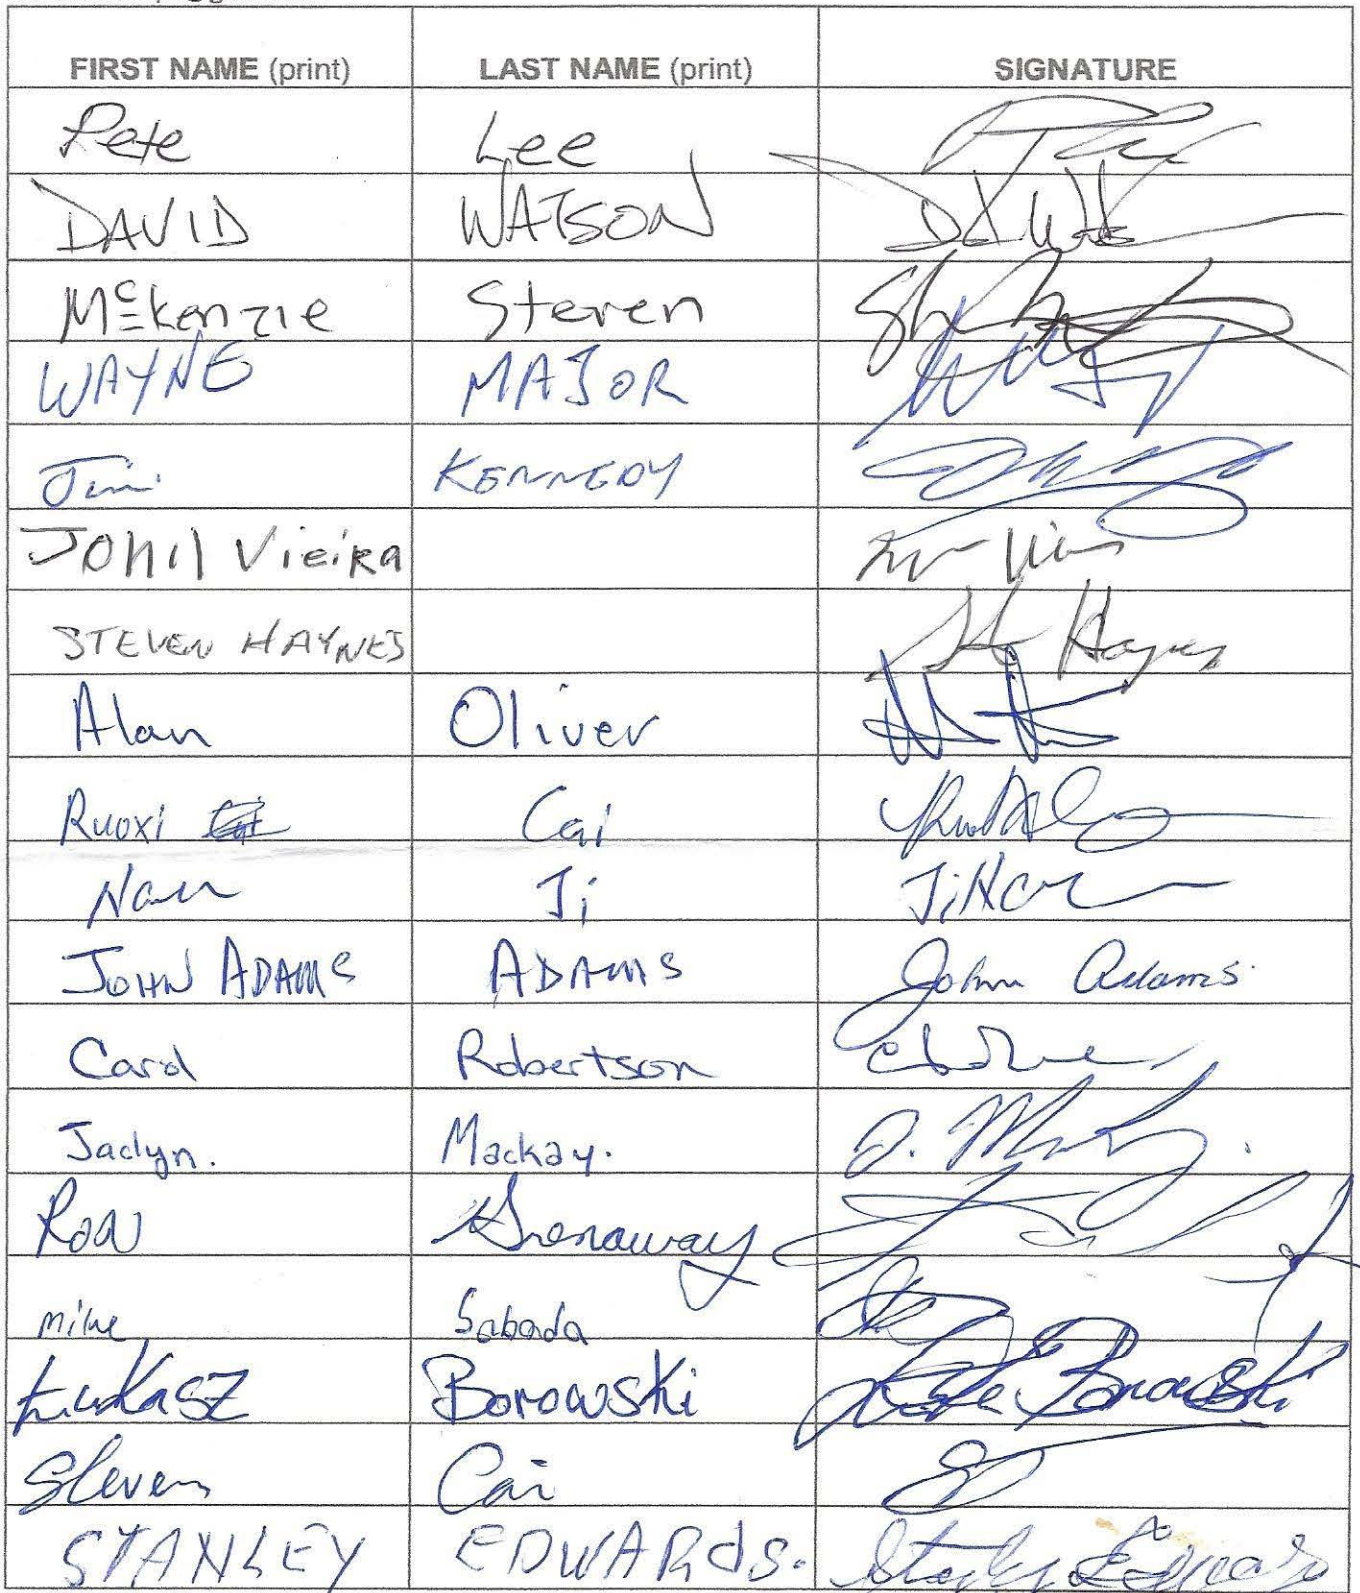 FIRST NAME (print) LAST NAME (print) SIGNATURE
Pete Lee
DAVID WATSON
McKenzie Steven
WAYNE MAJOR
Jim KENNEDY
JOHN Vieira
STEVEN HAYNES
Alan Oliver
Ruoxi Cai
Nan Ji Ji Nan
JOHN ADAMS ADAMS John Adams
Carol Robertson
Jaclyn. Mackay. J. Mackay.
Ron Grenaway
mike Sabada
Łukasz Borowski Borowski
Steven Cai
STANLEY EDWARDS. Stanley Edwards